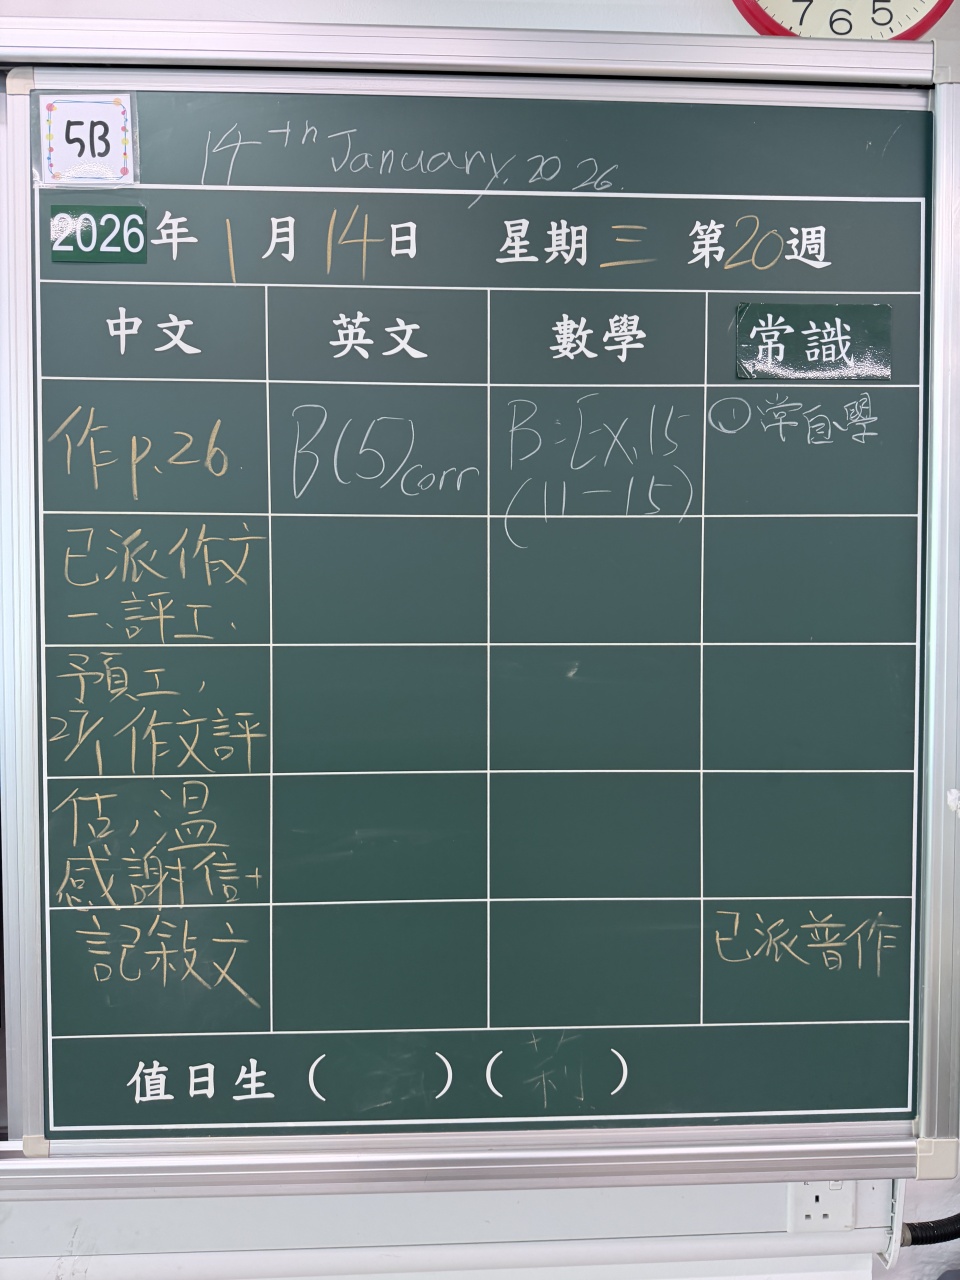 7 6 5
5B
14th January, 2026.
2026年1月14日 星期三 第20週
中文 英文 數學 常識
作p.26. B(5)corr B:Ex.15 ①常自學
(11-15)
已派作文
一、評工、
預工,
27/1作文評
估,溫
感謝信+
記敘文 已派普作
值日生( )( 莉 )